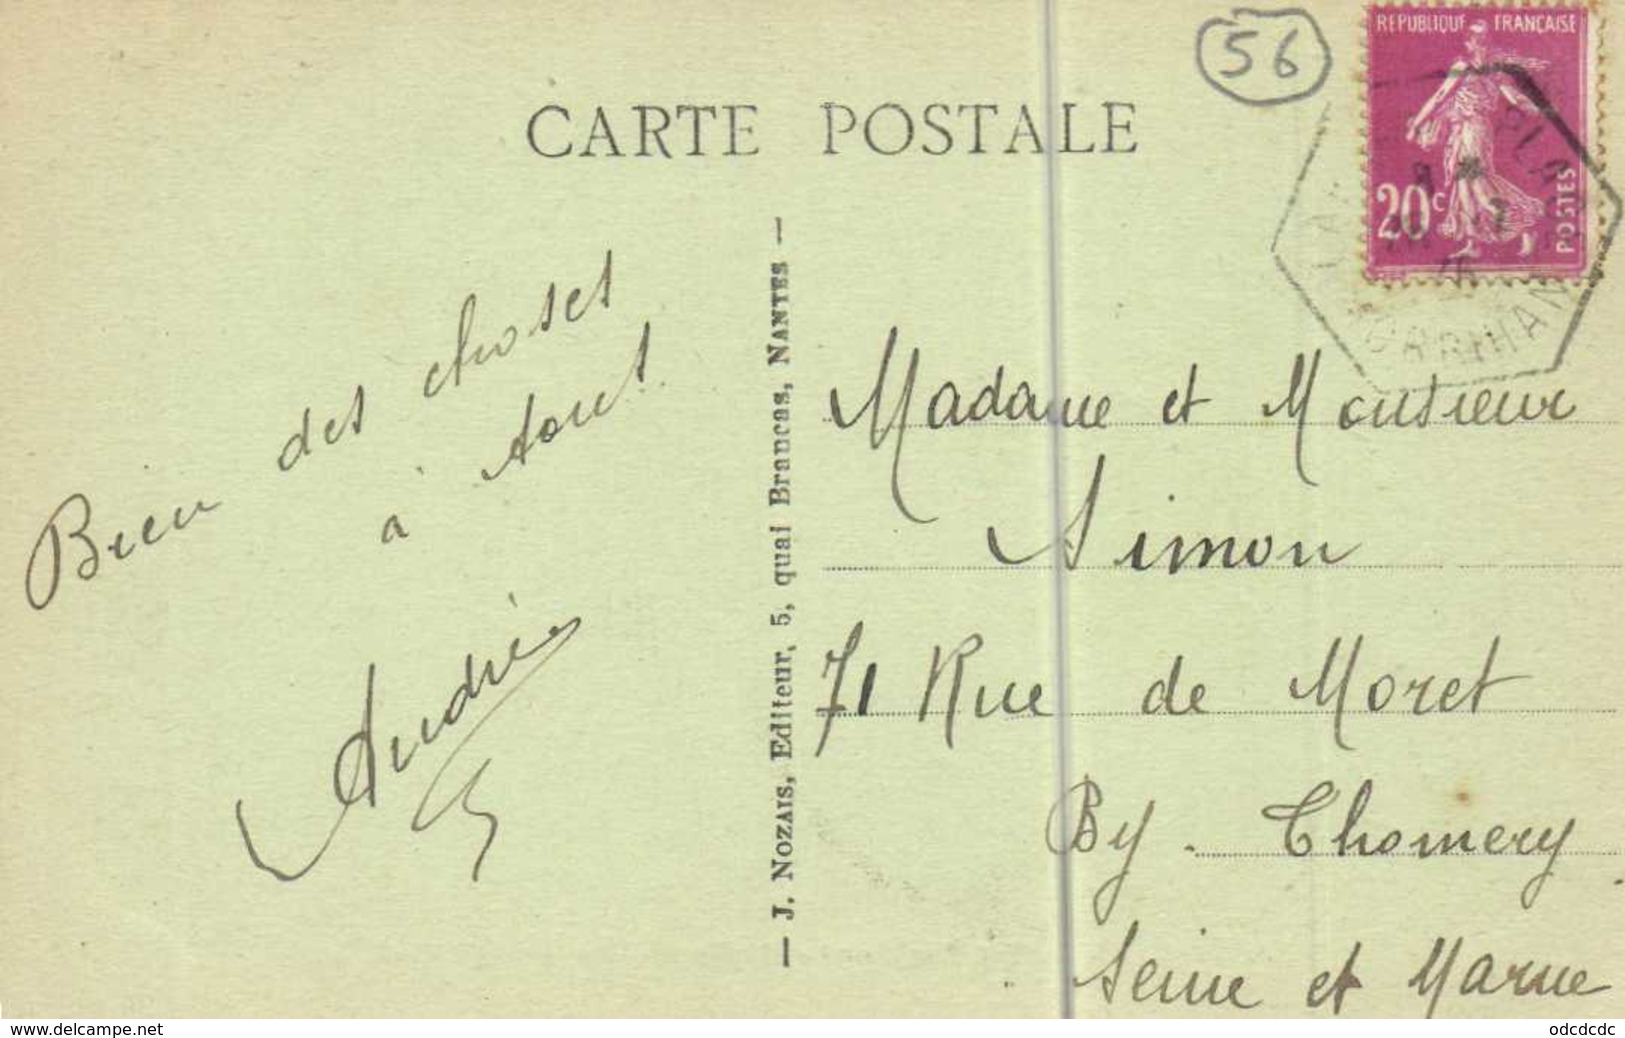 56
REPUBLIQUE FRANÇAISE
20c
POSTES
MORBIHAN
CARTE POSTALE
Bien des choses
à tous.
André
— J. NOZAIS, Editeur, 5, quai Brancas, NANTES —
Madame et Monsieur
Simon
71 Rue de Moret
By - Thomery
Seine et Marne
www.delcampe.net
odcdcdc